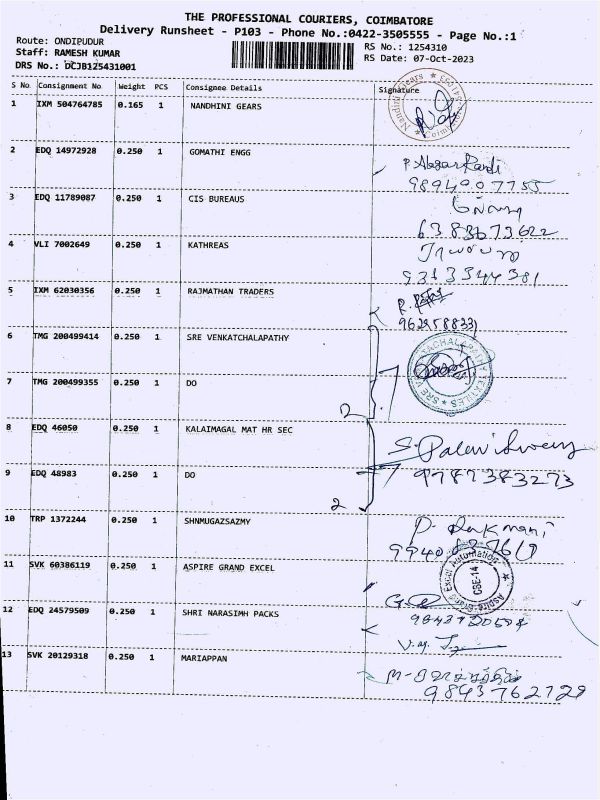 THE PROFESSIONAL COURIERS, COIMBATORE
Delivery Runsheet - P103 - Phone No.:0422-3505555 - Page No.:1
Route: ONDIPUDUR
RS No.: 1254310
Staff: RAMESH KUMAR
RS Date: 07-Oct-2023
DRS No.: DCJB125431001
S No Consignment No Weight PCS Consignee Details Signature
1 IXM 504764785 0.165 1 NANDHINI GEARS
2 EDQ 14972928 0.250 1 GOMATHI ENGG
9894907755
3 EDQ 11789087 0.250 1 CIS BUREAUS
6383673622
4 VLI 7002649 0.250 1 KATHREAS
9313544381
5 IXM 62030356 0.250 1 RAJMATHAN TRADERS
6 TMG 200499414 0.250 1 SRE VENKATCHALAPATHY
7 TMG 200499355 0.250 1 DO
2
8 EDQ 46050 0.250 1 KALAIMAGAL MAT HR SEC
9787383273
9 EDQ 48983 0.250 1 DO
2
10 TRP 1372244 0.250 1 SHNMUGAZSAZMY
11 SVK 60386119 0.250 1 ASPIRE GRAND EXCEL
CBE-14
12 EDQ 24579509 0.250 1 SHRI NARASIMH PACKS
13 SVK 20129318 0.250 1 MARIAPPAN
9843762729